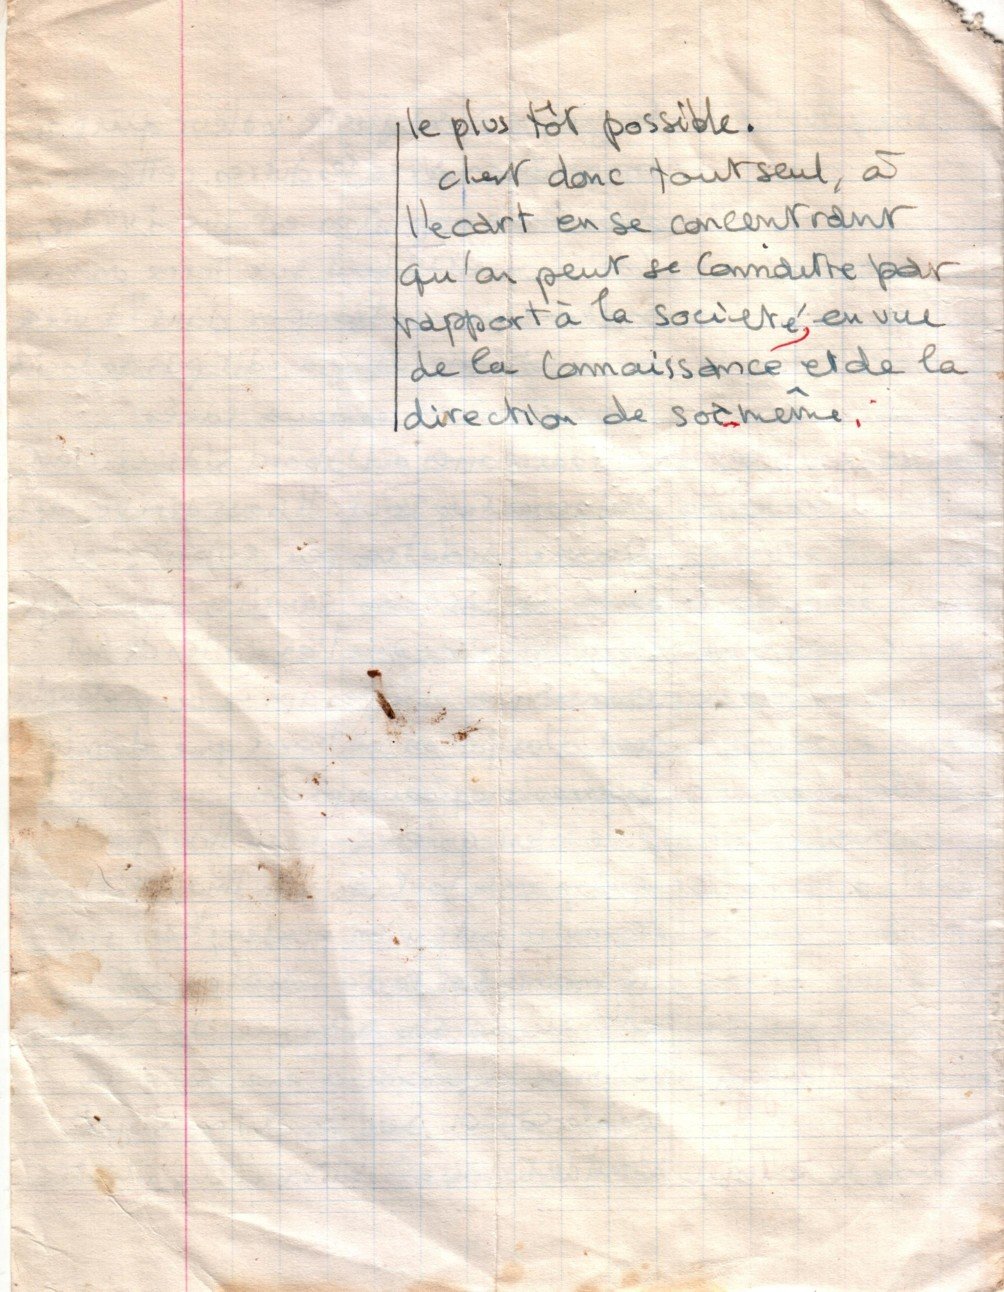 le plus tôt possible.
c'est donc tout seul, à
l'ecart en se concentrant
qu'on peut se connaitre par
rapport à la societé, en vue
de la connaissance et de la
direction de soi-même.